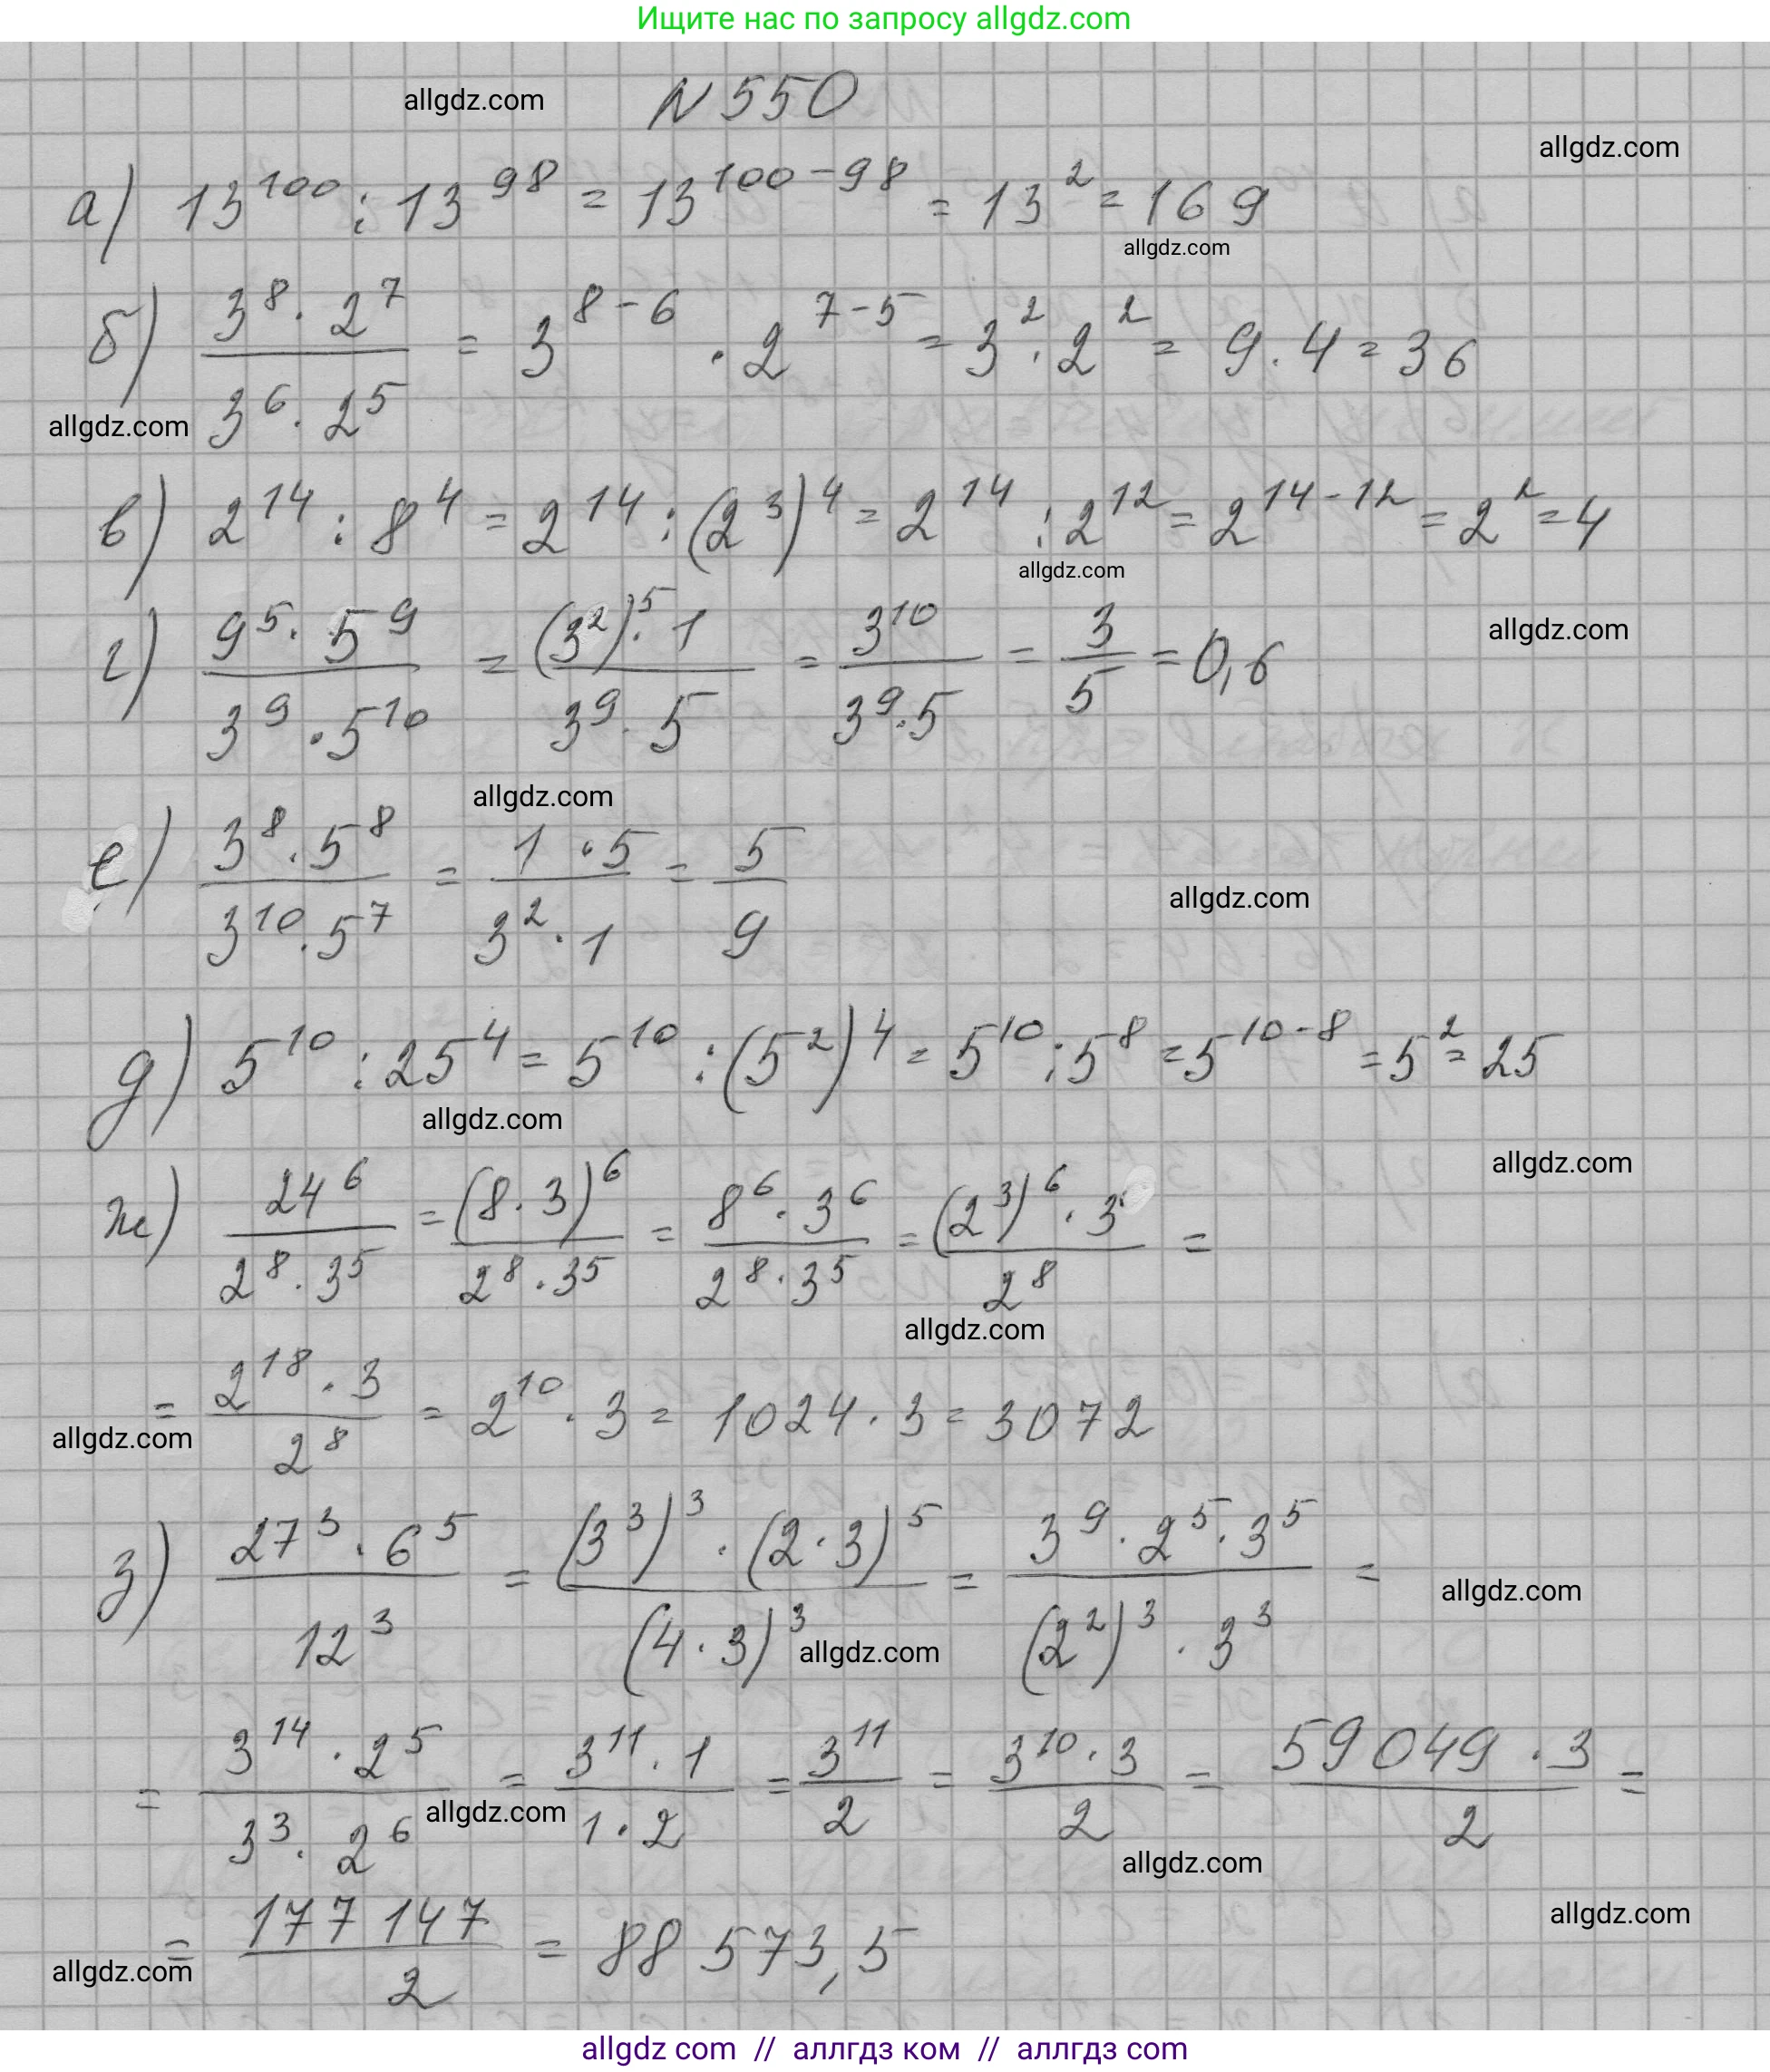 Ищите нас по запросу allgdz.com
allgdz.com
N 550
allgdz.com
а) 13^100 : 13^98 = 13^(100-98) = 13^2 = 169
allgdz.com
б) (3^8 · 2^7)/(3^6 · 2^5) = 3^(8-6) · 2^(7-5) = 3^2 · 2^2 = 9 · 4 = 36
allgdz.com
в) 2^14 : 8^4 = 2^14 : (2^3)^4 = 2^14 : 2^12 = 2^(14-12) = 2^2 = 4
allgdz.com
г) (9^5 · 5^9)/(3^9 · 5^10) = ((3^2)^5 · 1)/(3^9 · 5) = 3^10/(3^9 · 5) = 3/5 = 0,6
allgdz.com
allgdz.com
е) (3^8 · 5^8)/(3^10 · 5^7) = (1 · 5)/(3^2 · 1) = 5/9
allgdz.com
д) 5^10 : 25^4 = 5^10 : (5^2)^4 = 5^10 : 5^8 = 5^(10-8) = 5^2 = 25
allgdz.com
allgdz.com
ж) 24^6/(2^8 · 3^5) = (8 · 3)^6/(2^8 · 3^5) = (8^6 · 3^6)/(2^8 · 3^5) = ((2^3)^6 · 3)/2^8 =
allgdz.com
= (2^18 · 3)/2^8 = 2^10 · 3 = 1024 · 3 = 3072
allgdz.com
з) (27^3 · 6^5)/12^3 = ((3^3)^3 · (2 · 3)^5)/(4 · 3)^3 = (3^9 · 2^5 · 3^5)/((2^2)^3 · 3^3) =
allgdz.com
allgdz.com
= (3^14 · 2^5)/(3^3 · 2^6) = (3^11 · 1)/(1 · 2) = 3^11/2 = (3^10 · 3)/2 = (59049 · 3)/2 =
allgdz.com
allgdz.com
allgdz.com
= 177 147/2 = 88 573,5
allgdz.com
allgdz com // аллгдз ком // аллгдз com